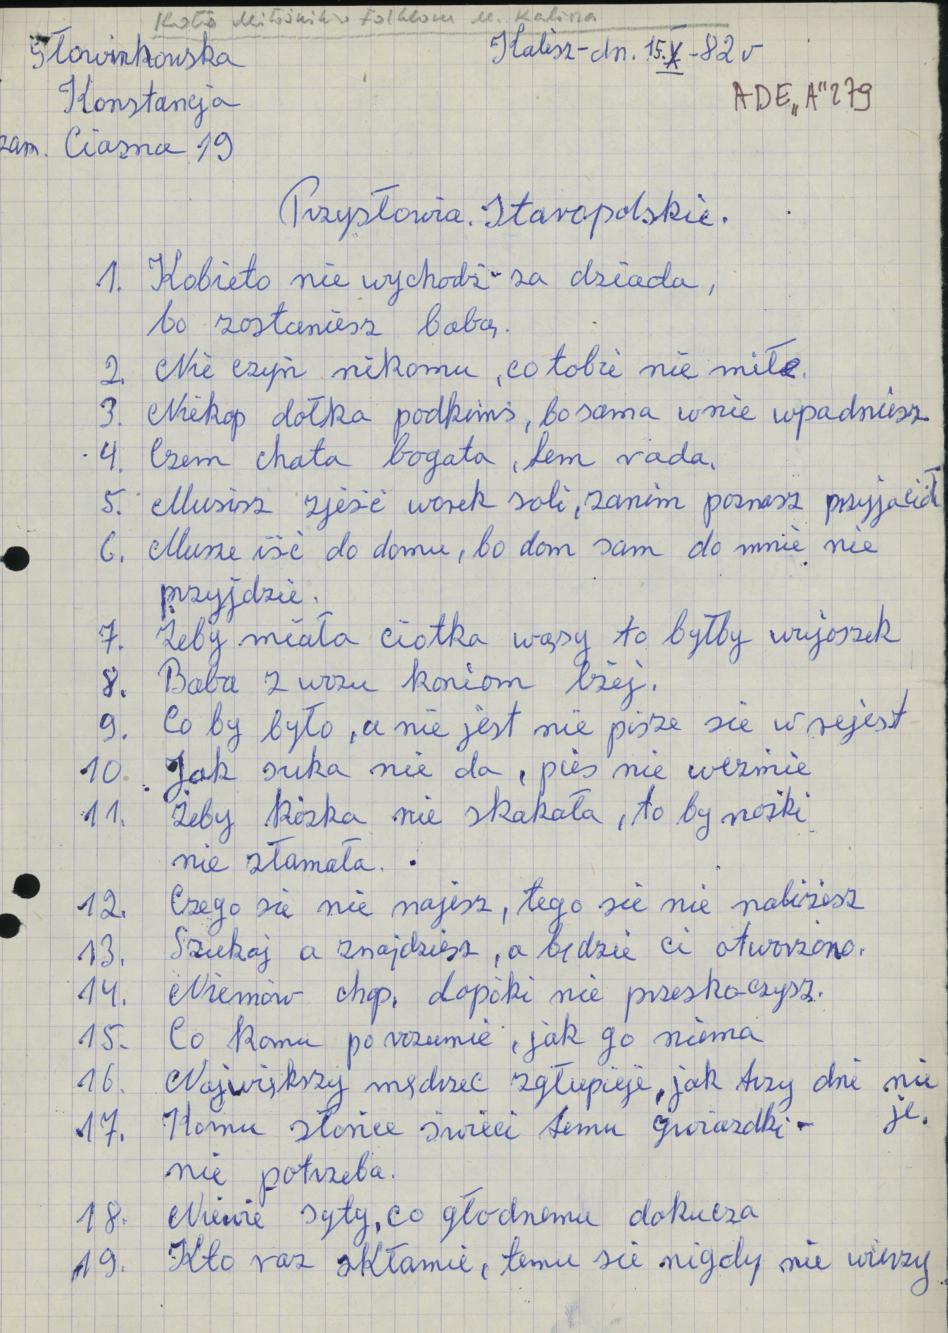 Koło Miłośników Folkloru M. Kalisza
Słowińkowska
Kalisz-dn. 15.X-82 r
Konstancja
ADE„A"279
zam. Ciasna 19
Przysłowia. Staropolskie.
1. Kobieto nie wychodź za dziada,
bo zostaniesz babą.
2. Nie czyń nikomu, co tobie nie miłe.
3. Niekop dołka podkimś, bo sama wnie wpadniesz
4. Czem chata bogata, tem rada.
5. Musisz zjeść worek soli, zanim poznasz przyjaciół
6. Musze iść do domu, bo dom sam do mnie nie
przyjdzie.
7. Żeby miała ciotka wąsy to byłby wujoszek
8. Baba z wozu koniom lżej.
9. Co by było, a nie jest nie pisze sie w rejest
10. Jak suka nie da, pies nie weźmie
11. Żeby kózka nie skakała, to by nóżki
nie złamała.
12. Czego sie nie najesz, tego sie nie naliżesz
13. Szukaj a znajdziesz, a będzie ci otworzono.
14. Niemów chop, dopóki nie przeskoczysz.
15. Co komu po rozumie, jak go niema
16. Największy mędrzec zgłupieje, jak trzy dni nie
je.
17. Komu słońce świeci temu gwiazdki-
nie potrzeba.
18. Niewie syty, co głodnemu dokucza
19. Kto raz skłamie, temu sie nigdy nie wierzy